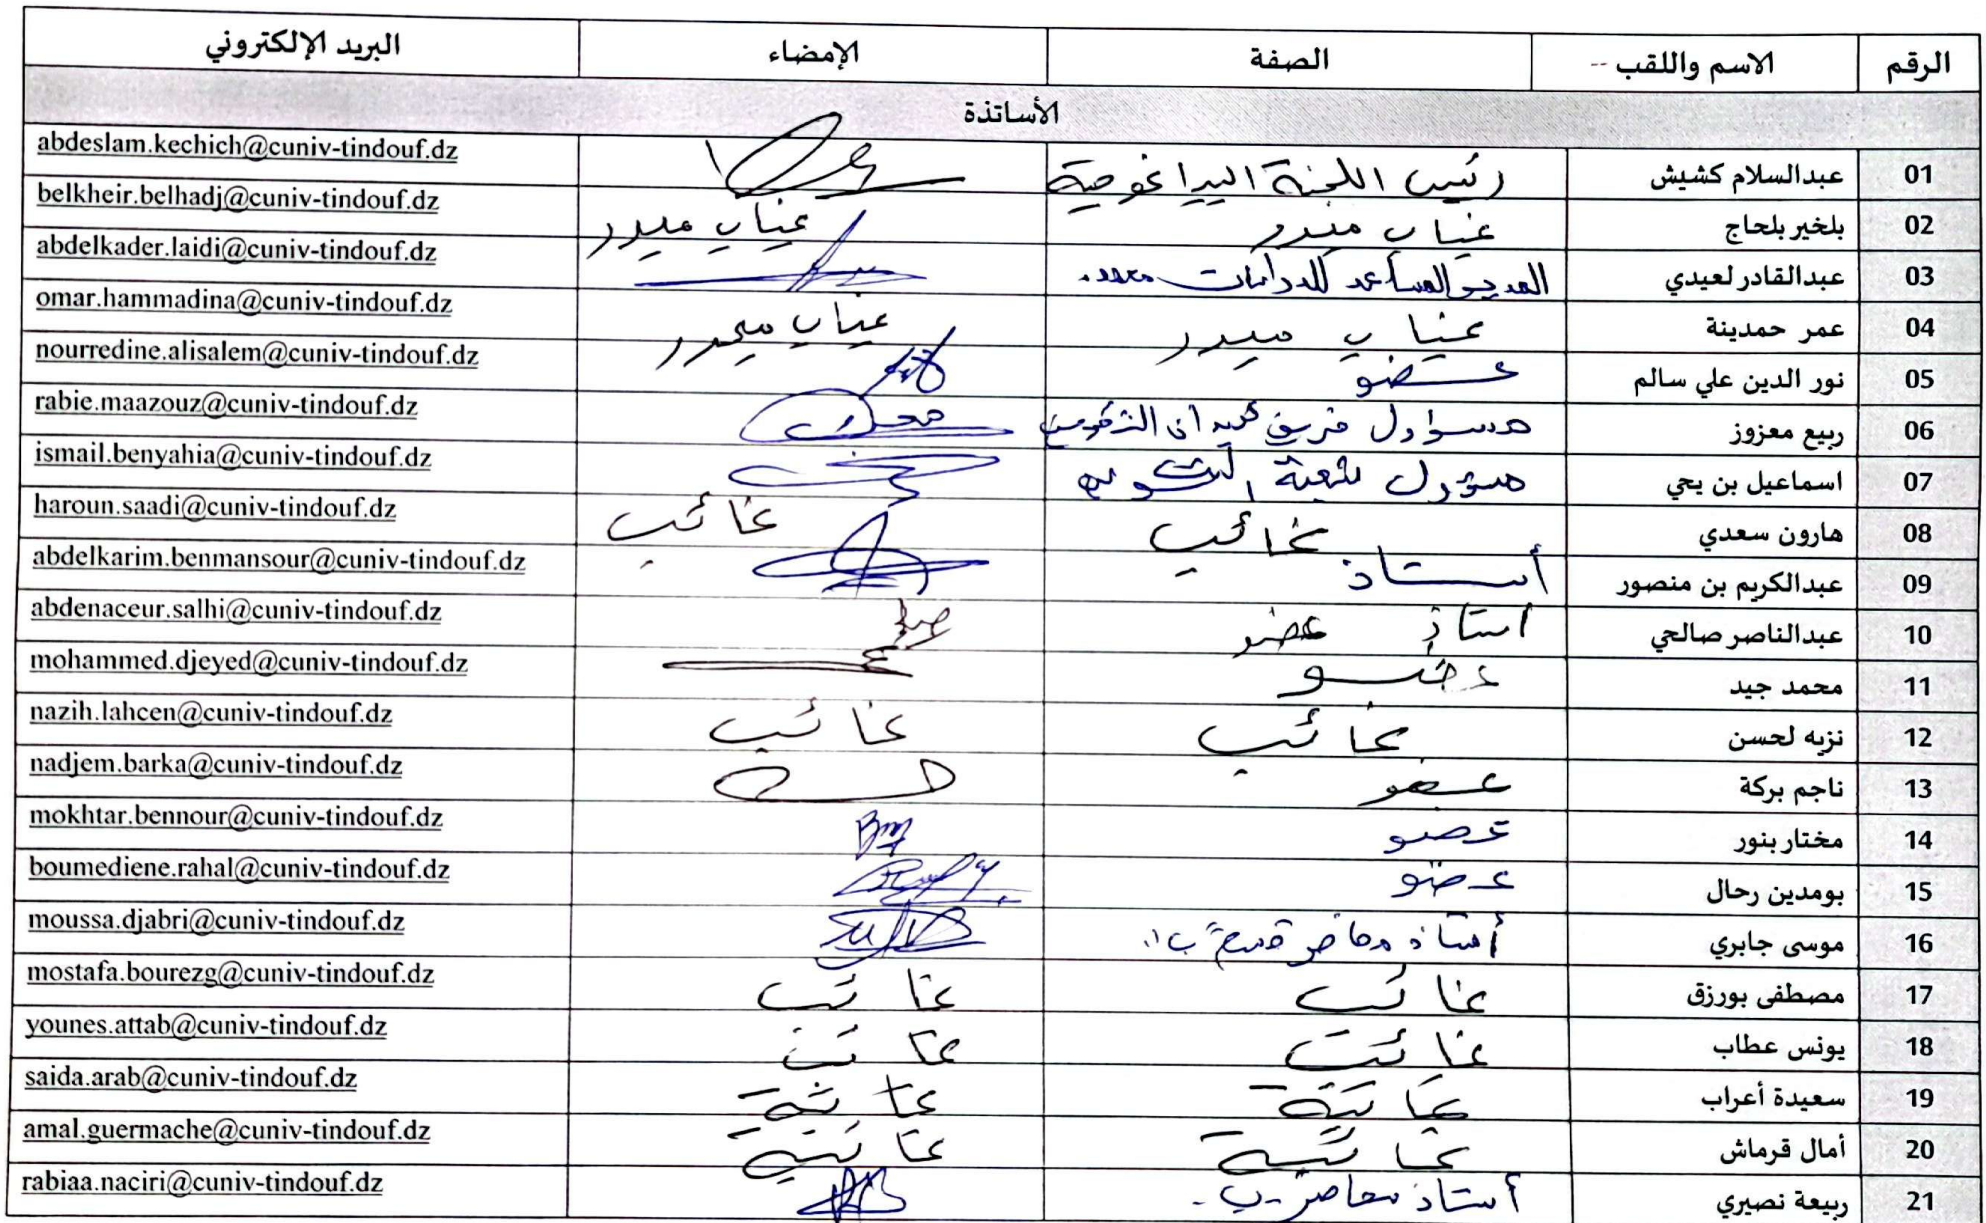 الرقم الاسم واللقب -- الصفة الإمضاء البريد الإلكتروني
الأساتذة
01 عبدالسلام كشيش رئيس اللجنة البيداغوجية abdeslam.kechich@cuniv-tindouf.dz
02 بلخير بلحاج غياب مبرر غياب مبرر belkheir.belhadj@cuniv-tindouf.dz
03 عبدالقادر لعيدي المدير المساعد للدراسات abdelkader.laidi@cuniv-tindouf.dz
04 عمر حمدينة غياب مبرر غياب مبرر omar.hammadina@cuniv-tindouf.dz
05 نور الدين علي سالم عضو nourredine.alisalem@cuniv-tindouf.dz
06 ربيع معزوز مسؤول فريق ميدان التكوين rabie.maazouz@cuniv-tindouf.dz
07 اسماعيل بن يحي مسؤول شعبة ismail.benyahia@cuniv-tindouf.dz
08 هارون سعدي غائب غائب haroun.saadi@cuniv-tindouf.dz
09 عبدالكريم بن منصور أستاذ abdelkarim.benmansour@cuniv-tindouf.dz
10 عبدالناصر صالحي استاذ عضو abdenaceur.salhi@cuniv-tindouf.dz
11 محمد جيد عضو mohammed.djeyed@cuniv-tindouf.dz
12 نزيه لحسن غائب غائب nazih.lahcen@cuniv-tindouf.dz
13 ناجم بركة عضو nadjem.barka@cuniv-tindouf.dz
14 مختار بنور عضو mokhtar.bennour@cuniv-tindouf.dz
15 بومدين رحال عضو boumediene.rahal@cuniv-tindouf.dz
16 موسى جابري أستاذ محاضر قسم "ب" moussa.djabri@cuniv-tindouf.dz
17 مصطفى بورزق غائب غائب mostafa.bourezg@cuniv-tindouf.dz
18 يونس عطاب غائب غائب younes.attab@cuniv-tindouf.dz
19 سعيدة أعراب غائبة غائبة saida.arab@cuniv-tindouf.dz
20 أمال قرماش غائبة غائبة amal.guermache@cuniv-tindouf.dz
21 ربيعة نصيري أستاذ محاضر -ب- rabiaa.naciri@cuniv-tindouf.dz